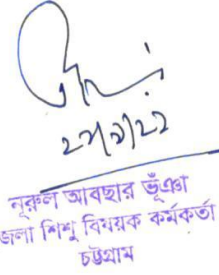 নূরুল আবছার ভূঁঞা
জেলা শিশু বিষয়ক কর্মকর্তা
চট্টগ্রাম